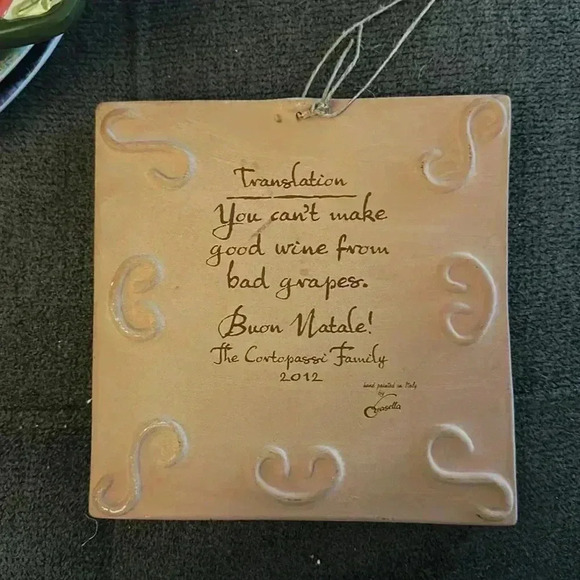 Translation
You can't make
good wine from
bad grapes.
Buon Natale!
The Cortopassi Family
2012
hand painted in Italy
by